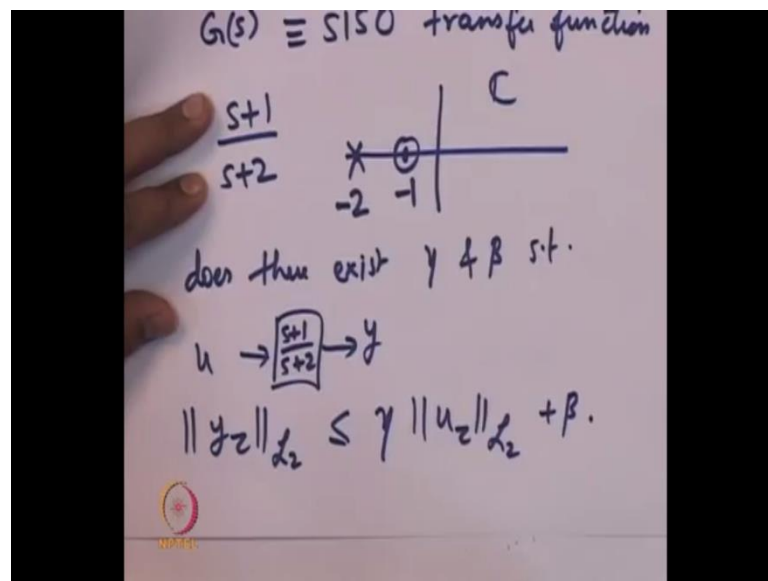 G(s) ≡ SISO transfer function
s+1
s+2
ℂ
-2 -1
does there exist γ & β s.t.
u → s+1 → y
s+2
||y_τ||_ℒ₂ ≤ γ ||u_τ||_ℒ₂ + β.
NPTEL